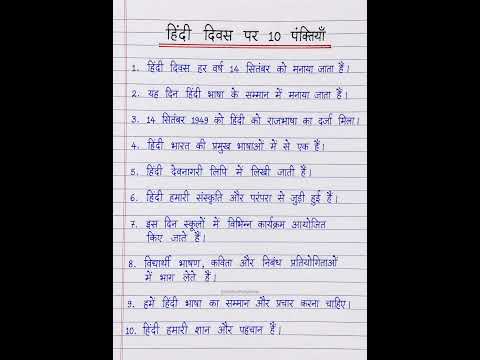 हिंदी दिवस पर 10 पंक्तियाँ
1. हिंदी दिवस हर वर्ष 14 सितंबर को मनाया जाता है।
2. यह दिन हिंदी भाषा के सम्मान में मनाया जाता है।
3. 14 सितंबर 1949 को हिंदी को राजभाषा का दर्जा मिला।
4. हिंदी भारत की प्रमुख भाषाओं में से एक है।
5. हिंदी देवनागरी लिपि में लिखी जाती है।
6. हिंदी हमारी संस्कृति और परंपरा से जुड़ी हुई है।
7. इस दिन स्कूलों में विभिन्न कार्यक्रम आयोजित
किए जाते हैं।
8. विद्यार्थी भाषण, कविता और निबंध प्रतियोगिताओं
में भाग लेते हैं।
9. हमें हिंदी भाषा का सम्मान और प्रचार करना चाहिए।
10. हिंदी हमारी शान और पहचान है।